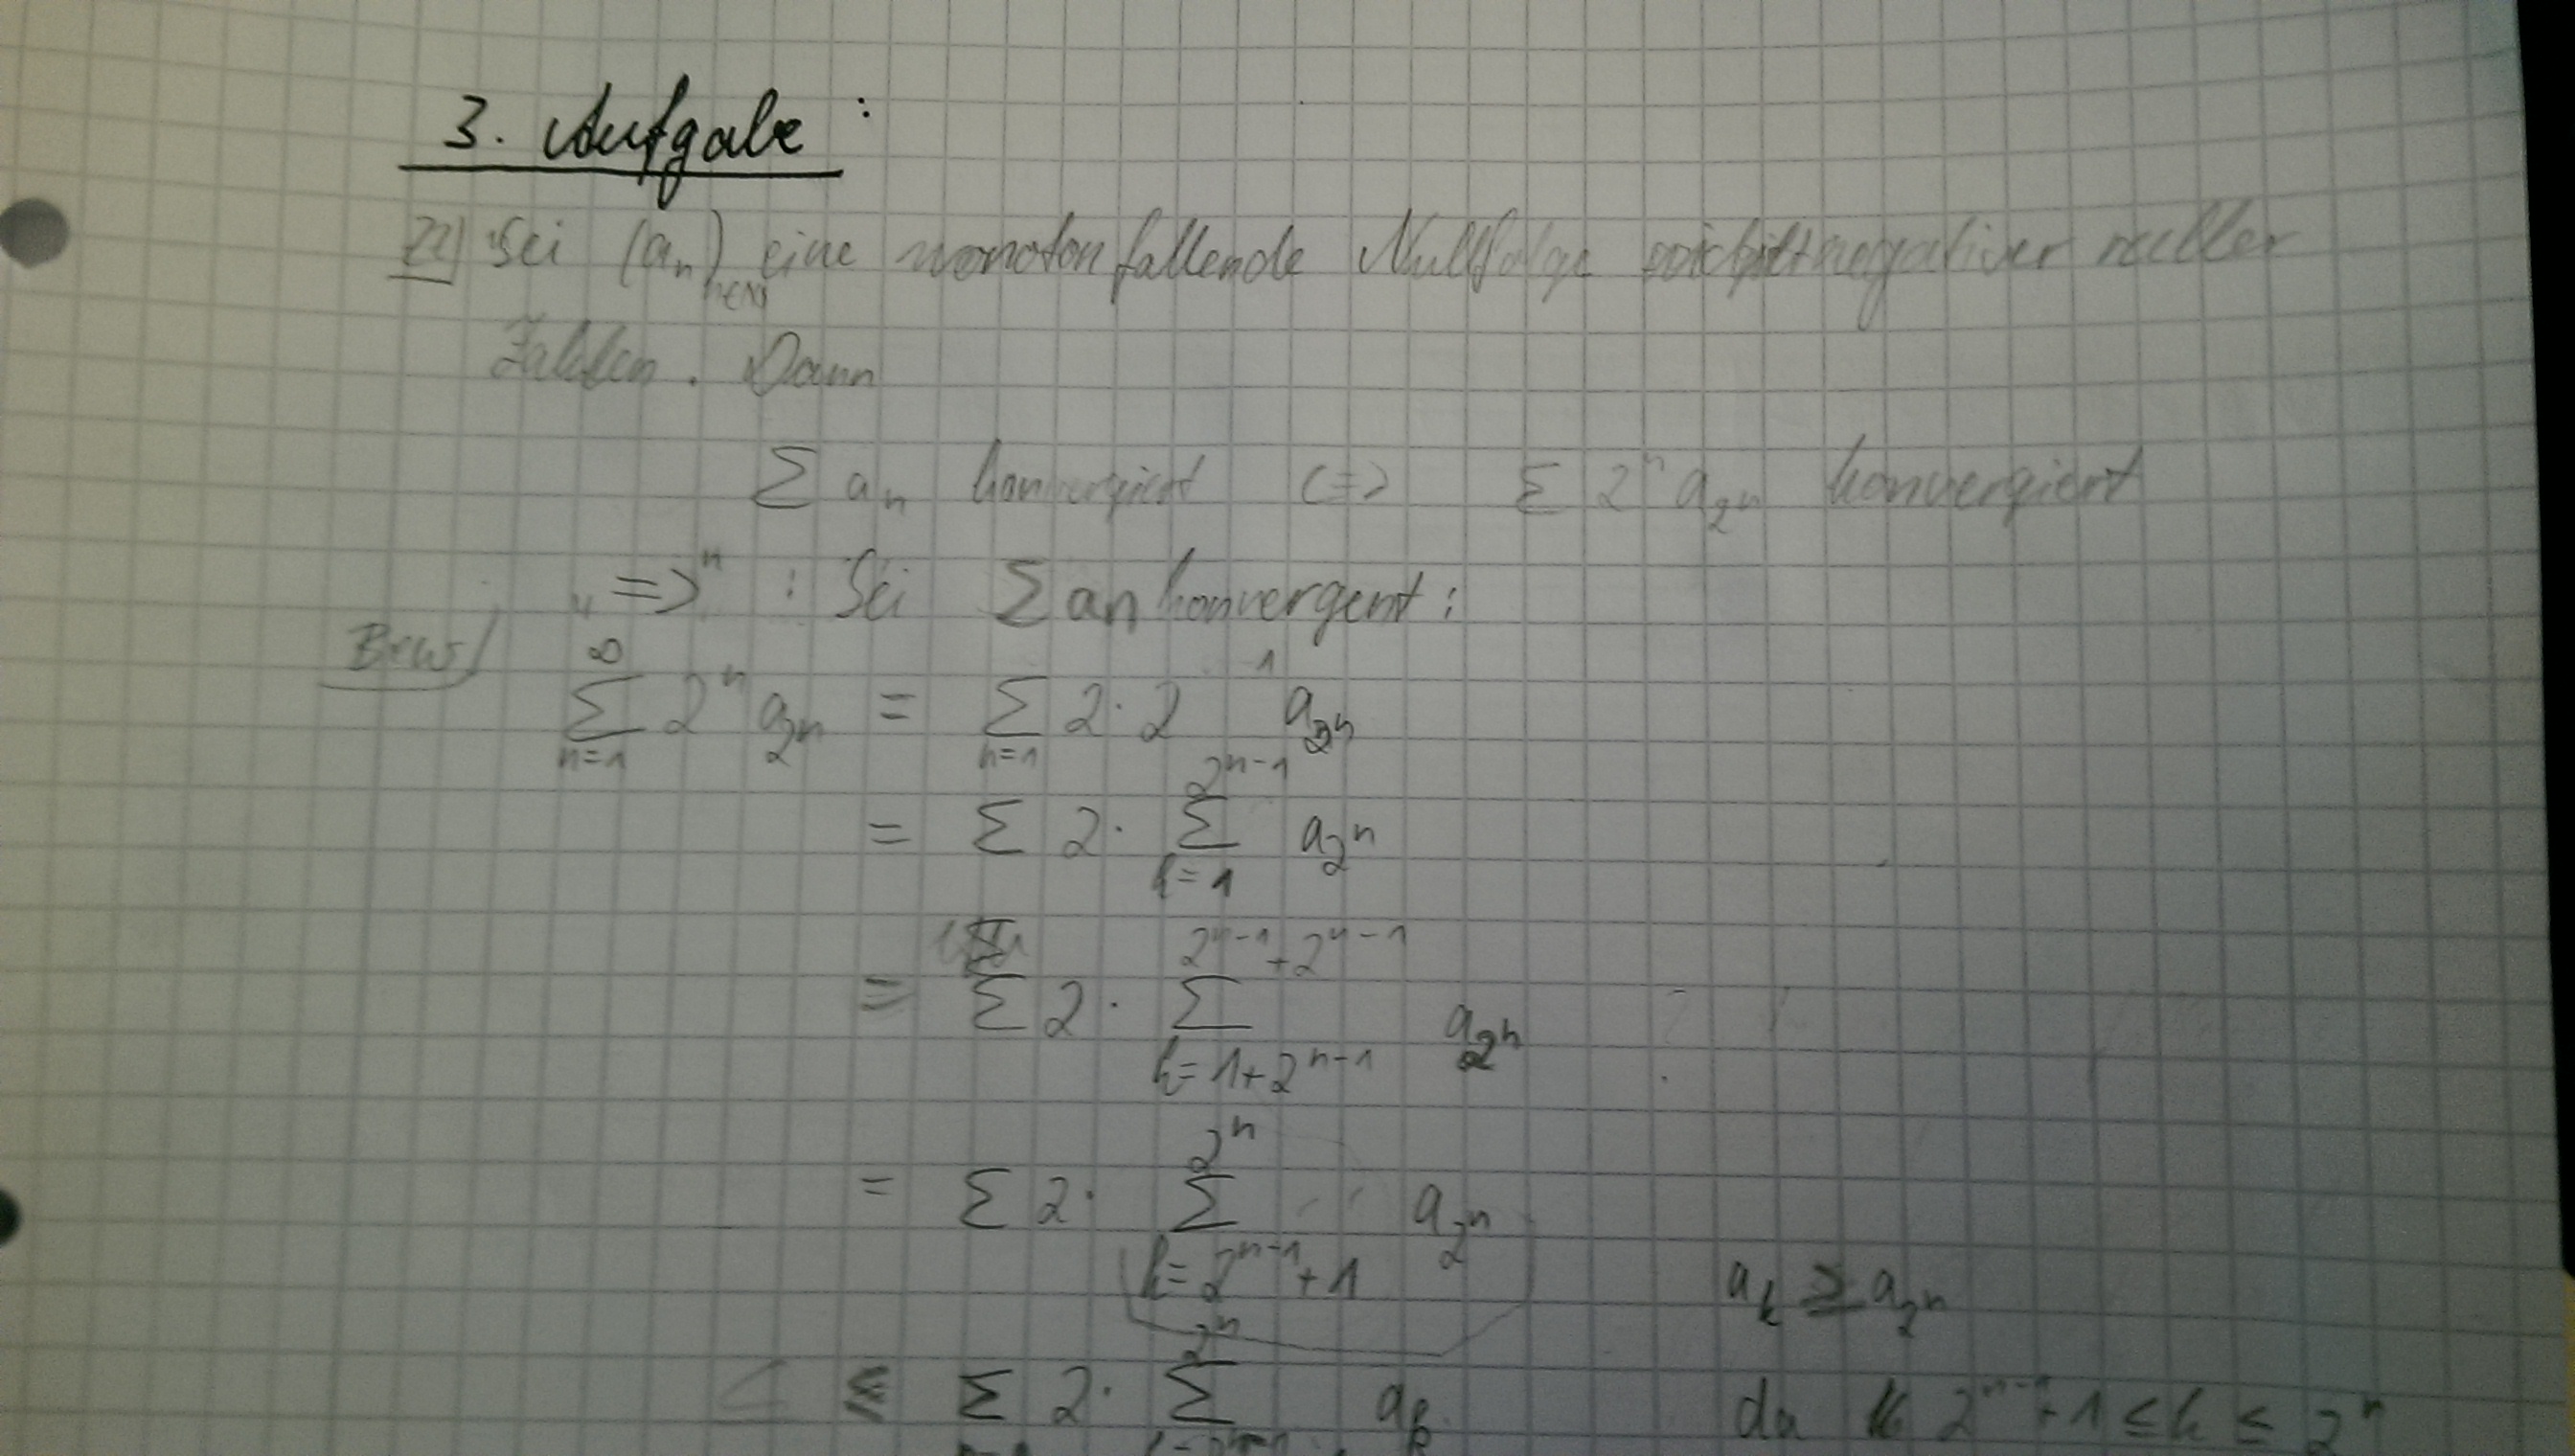 3. Aufgabe:
ZZ) Sei (a_n)_{n∈ℕ} eine monoton fallende Nullfolge reeller
Zahlen. Dann
Σ a_n konvergiert <=> Σ 2^n a_{2^n} konvergiert
„=>" : Sei Σ an konvergent:
Bew/ Σ_{n=1}^∞ 2^n a_{2^n} = Σ_{n=1} 2·2 ^1 a_{2^n}
= Σ 2· Σ_{k=1}^{2^{n-1}} a_{2^n}
= Σ 2· Σ_{k=1+2^{n-1}}^{2^{n-1}+2^{n-1}} a_{2^n}
= Σ 2· Σ_{k=2^{n-1}+1}^{2^n} a_{2^n} a_k ≥ a_{2^n}
≤ Σ 2· Σ^{2^n} a_k da 2^{n-1}+1 ≤ k ≤ 2^n